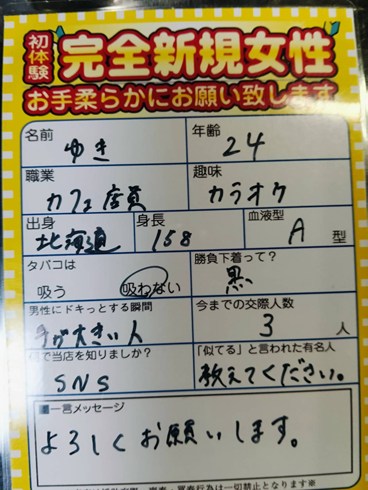 初体験 完全新規女性
お手柔らかにお願い致します
名前 ゆき 年齢 24
職業 カフェ店員 趣味 カラオケ
出身 北海道 身長 158 血液型 A 型
タバコは 吸う 吸わない 勝負下着って? 黒
男性にドキっとする瞬間 手が大きい人 今までの交際人数 3 人
で当店を知りましたか? SNS 「似てる」と言われた有名人 教えてください。
■一言メッセージ
よろしくお願いします。
行為は一切禁止となります※